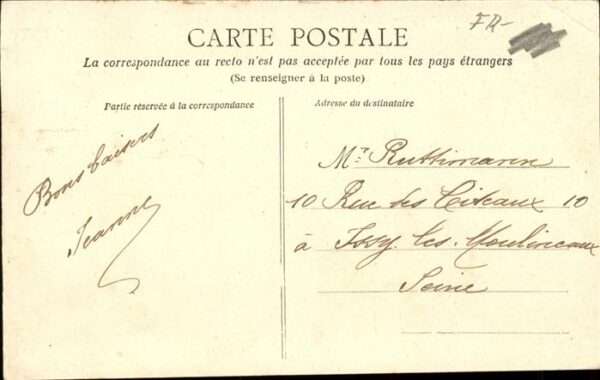 FR-
CARTE POSTALE
La correspondance au recto n'est pas acceptée par tous les pays étrangers
(Se renseigner à la poste)
Partie réservée à la correspondance
Adresse du destinataire
Bons baisers
Jeanne
Mr. Ruttimann
10 Rue des Citeaux 10
à Issy-les-Moulineaux
Seine